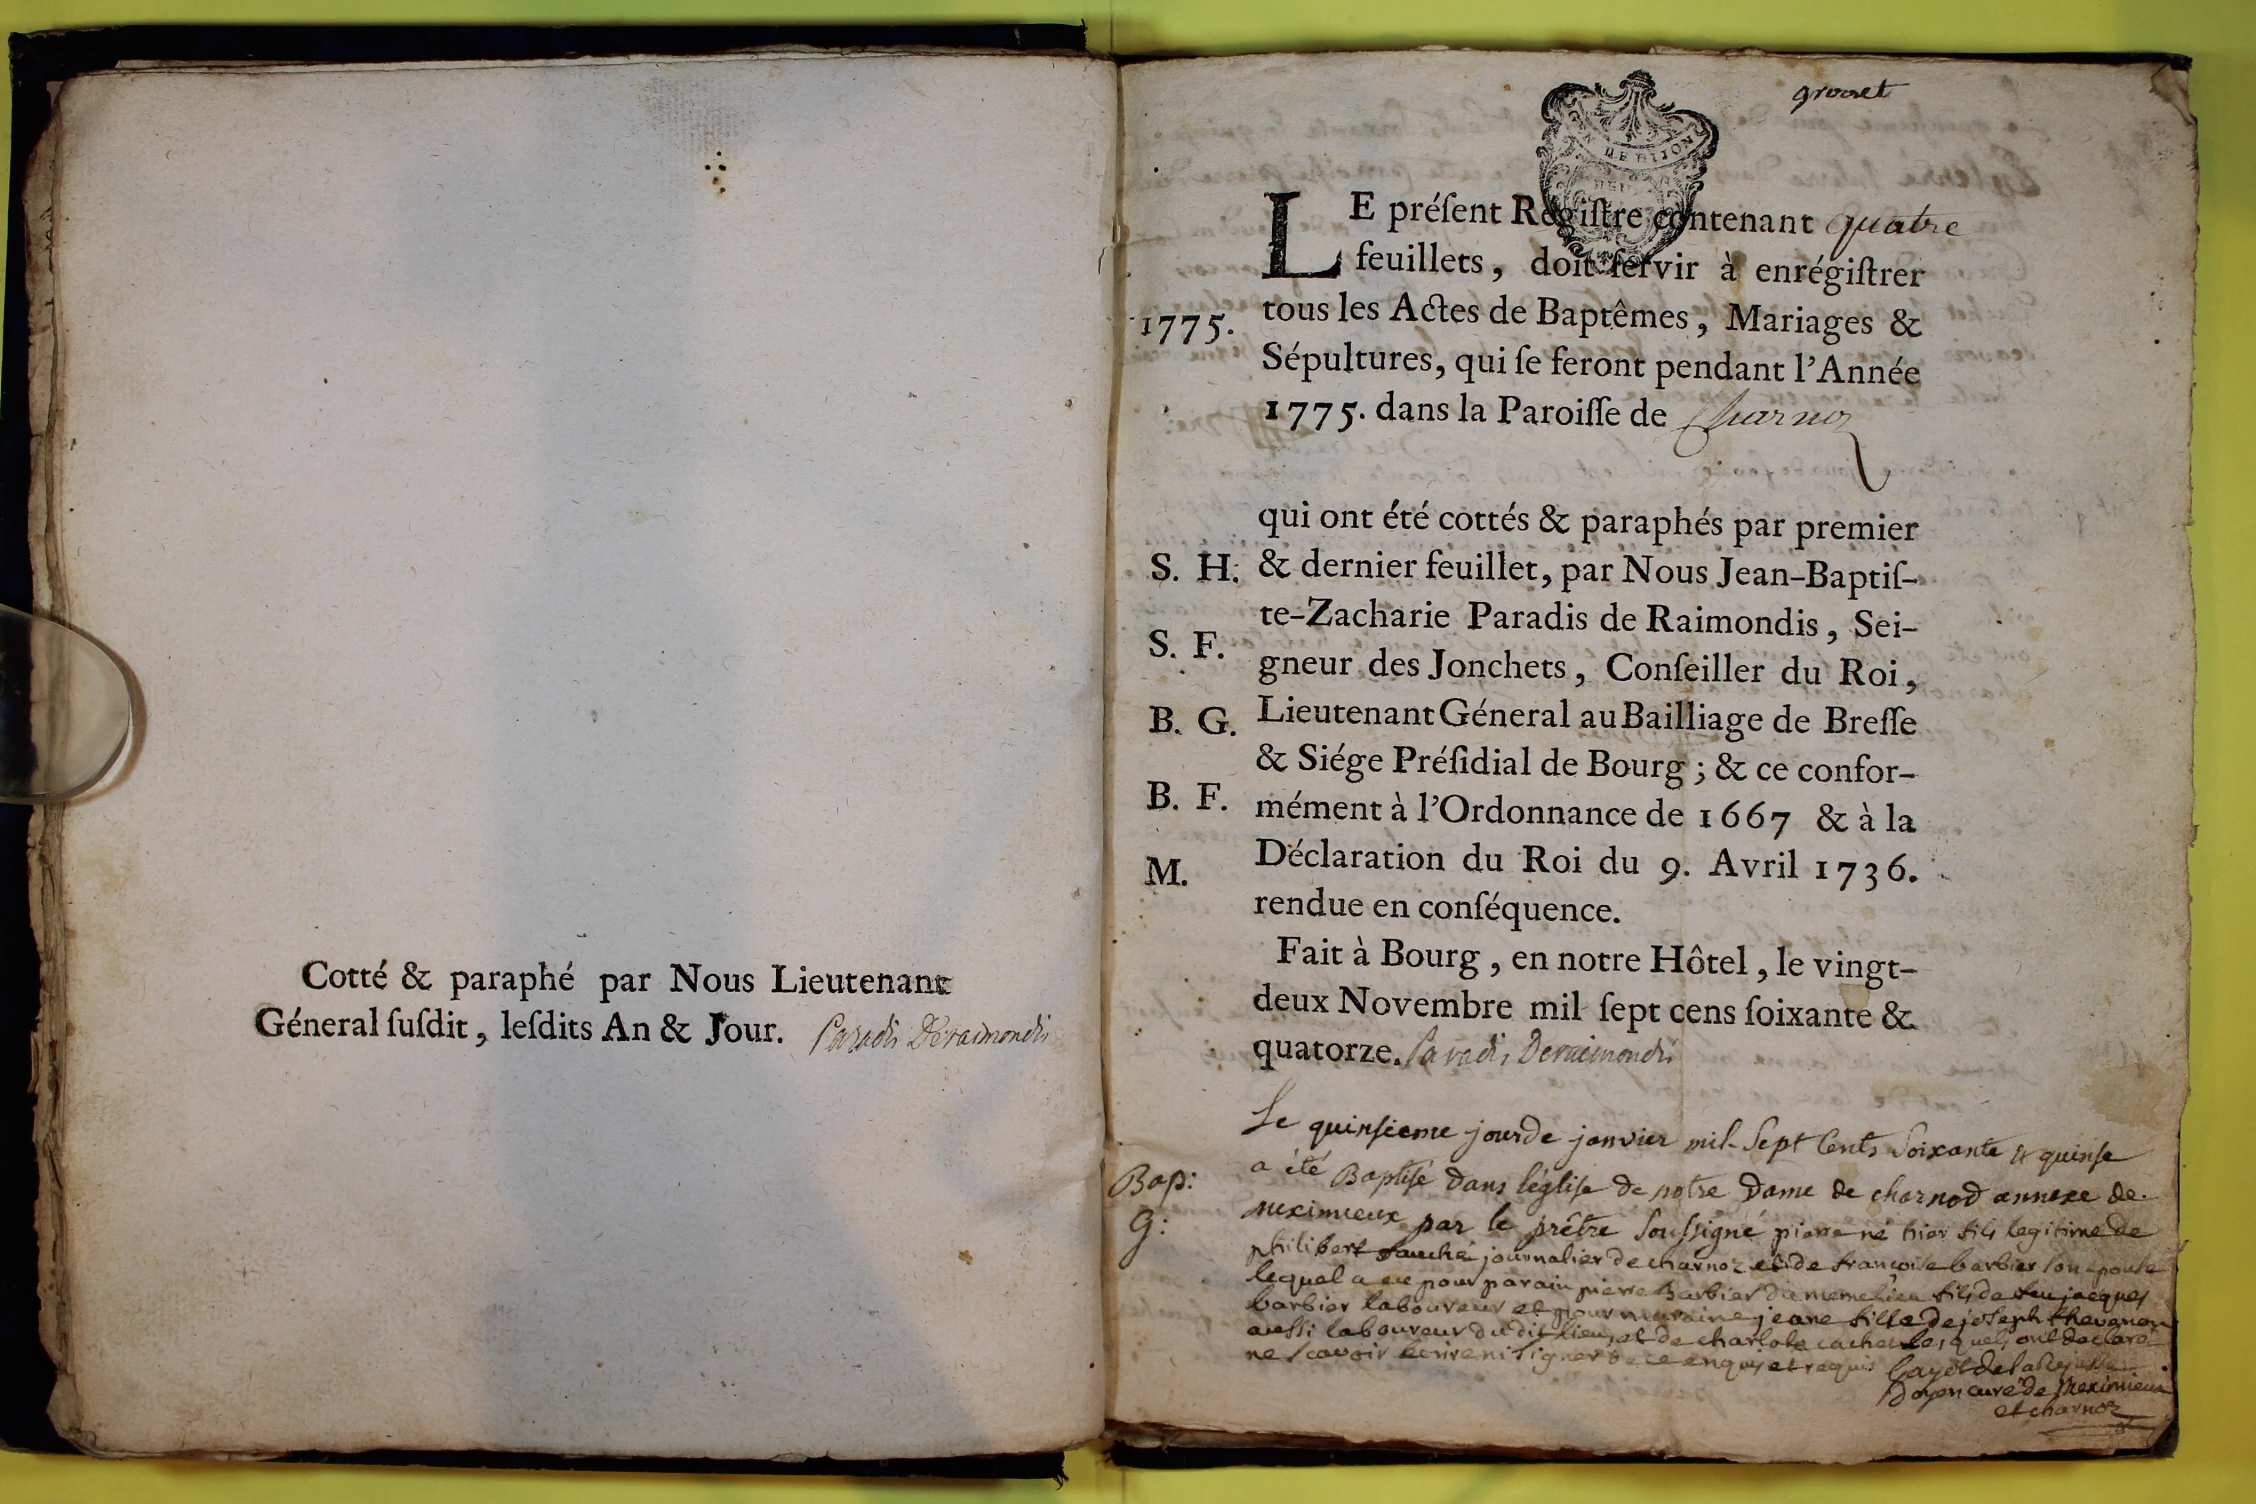 Cotté & paraphé par Nous Lieutenant
Géneral ſuſdit, leſdits An & Jour. Paradis Deraimondis
GEN DE DIJON
LE préſent Regiſtre contenant quatre
feuillets, doit ſervir à enrégiſtrer
tous les Actes de Baptêmes, Mariages &
1775.
Sépultures, qui ſe feront pendant l'Année
1775. dans la Paroiſſe de Charnoz
qui ont été cottés & paraphés par premier
S. H. & dernier feuillet, par Nous Jean-Baptiſ-
te-Zacharie Paradis de Raimondis, Sei-
S. F.
gneur des Jonchets, Conſeiller du Roi,
B. G. Lieutenant Géneral au Bailliage de Breſſe
& Siége Préſidial de Bourg ; & ce confor-
B. F. mément à l'Ordonnance de 1667 & à la
M. Déclaration du Roi du 9. Avril 1736.
rendue en conſéquence.
Fait à Bourg, en notre Hôtel, le vingt-
deux Novembre mil ſept cens ſoixante &
quatorze. Paradis Deraimondis
Le quinsieme jour de janvier mil Sept Cents Soixante et quinse
Bap: a été Baptisé dans léglise de notre Dame de charnod annexe de
G: meximieux par le prêtre Soussigné pierre né hier fils legitime de
philibert journalier de charnoz et de françoise barbier son epouse
lequel a eu pour parain pierre Barbier du meme lieu fils de feu jacques
barbier laboureur et pour maraine jeane fille de joseph thevenon
aussi laboureur dudit lieu, et de charlote cachet lesquels ont declaré
ne scavoir ecrire ni signer de ce enquis et requis
Doyen curé de Meximieux
et charnoz